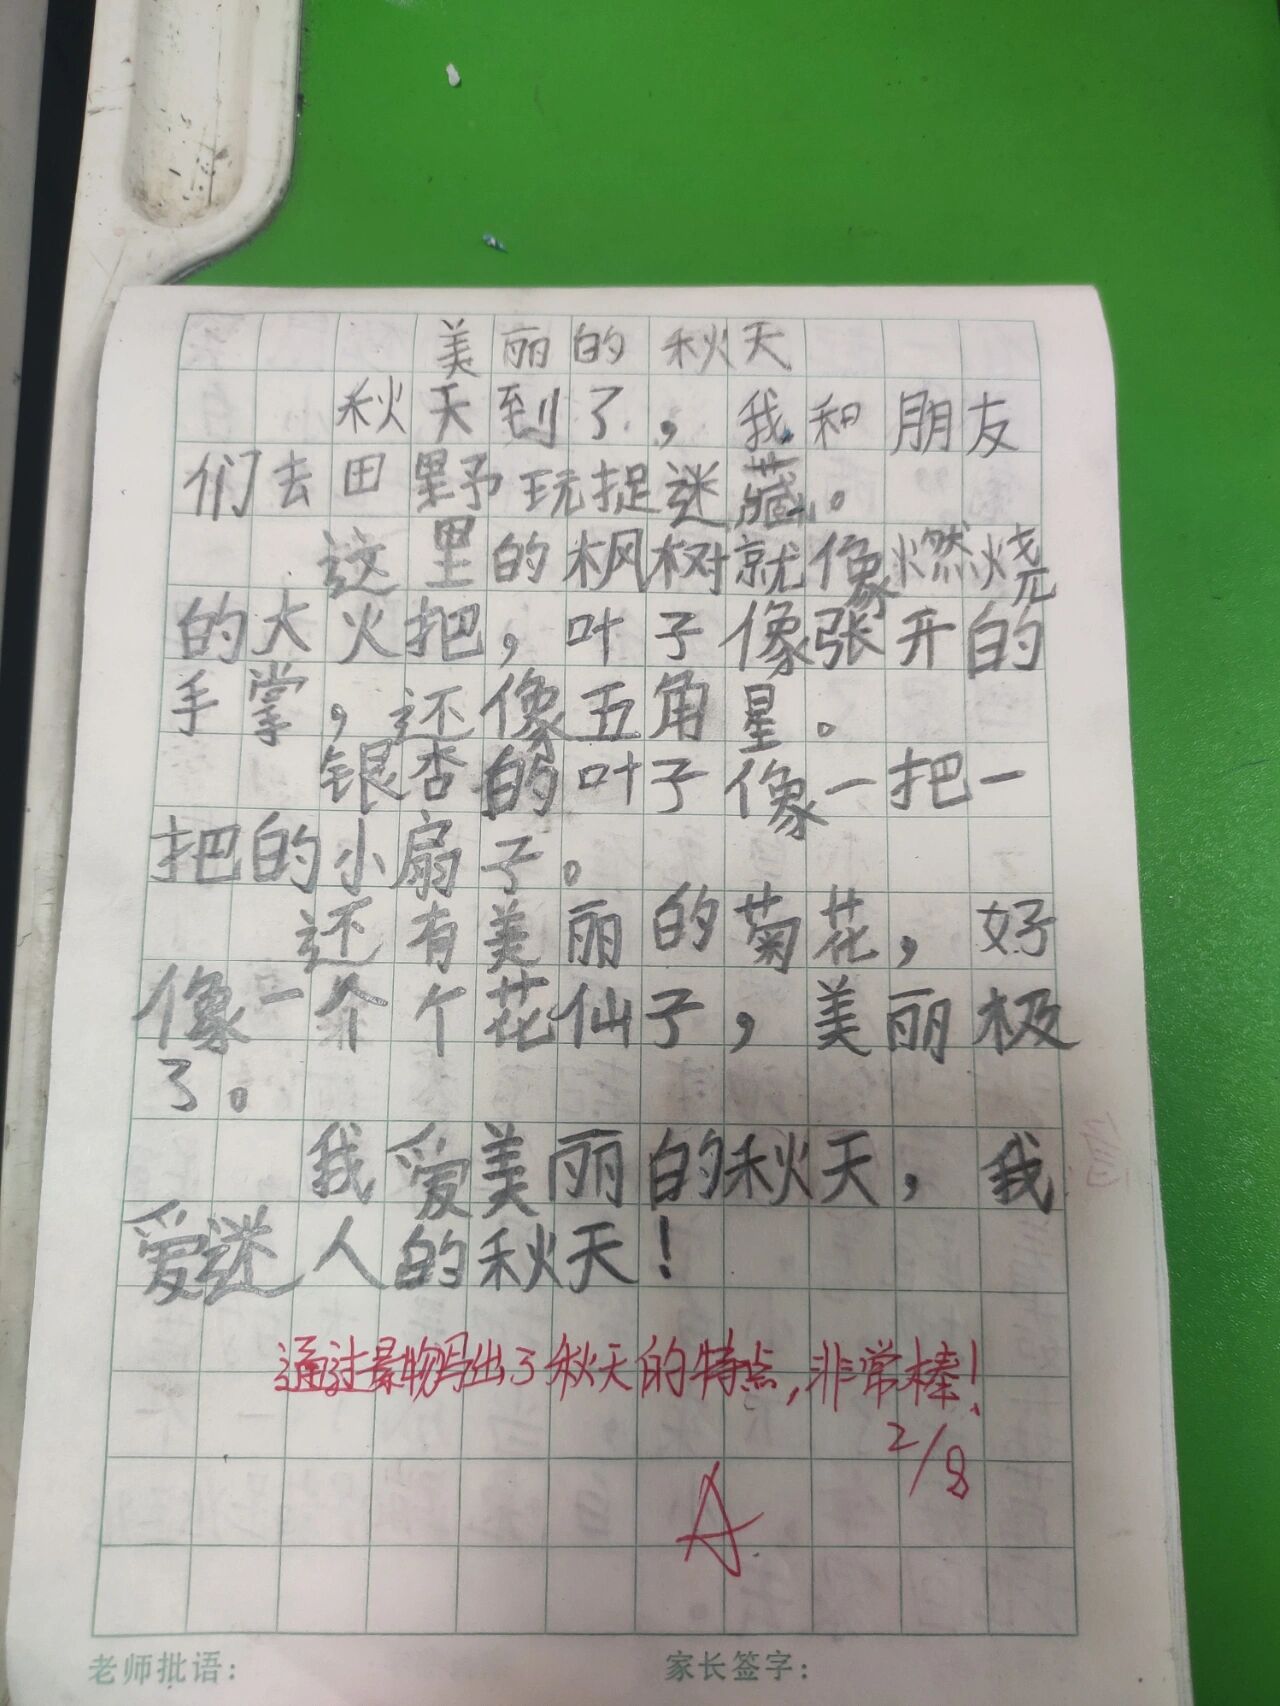 美丽的秋天
秋天到了，我和朋友
们去田野玩捉迷藏。
这里的枫树就像燃烧
的大火把，叶子像张开的
手掌，还像五角星。
银杏的叶子像一把一
把的小扇子。
还有美丽的菊花，好
像一个个花仙子，美丽极
了。
我爱美丽的秋天，我
爱迷人的秋天！
通过景物写出了秋天的特点，非常棒！
2/8
A
老师批语：
家长签字：